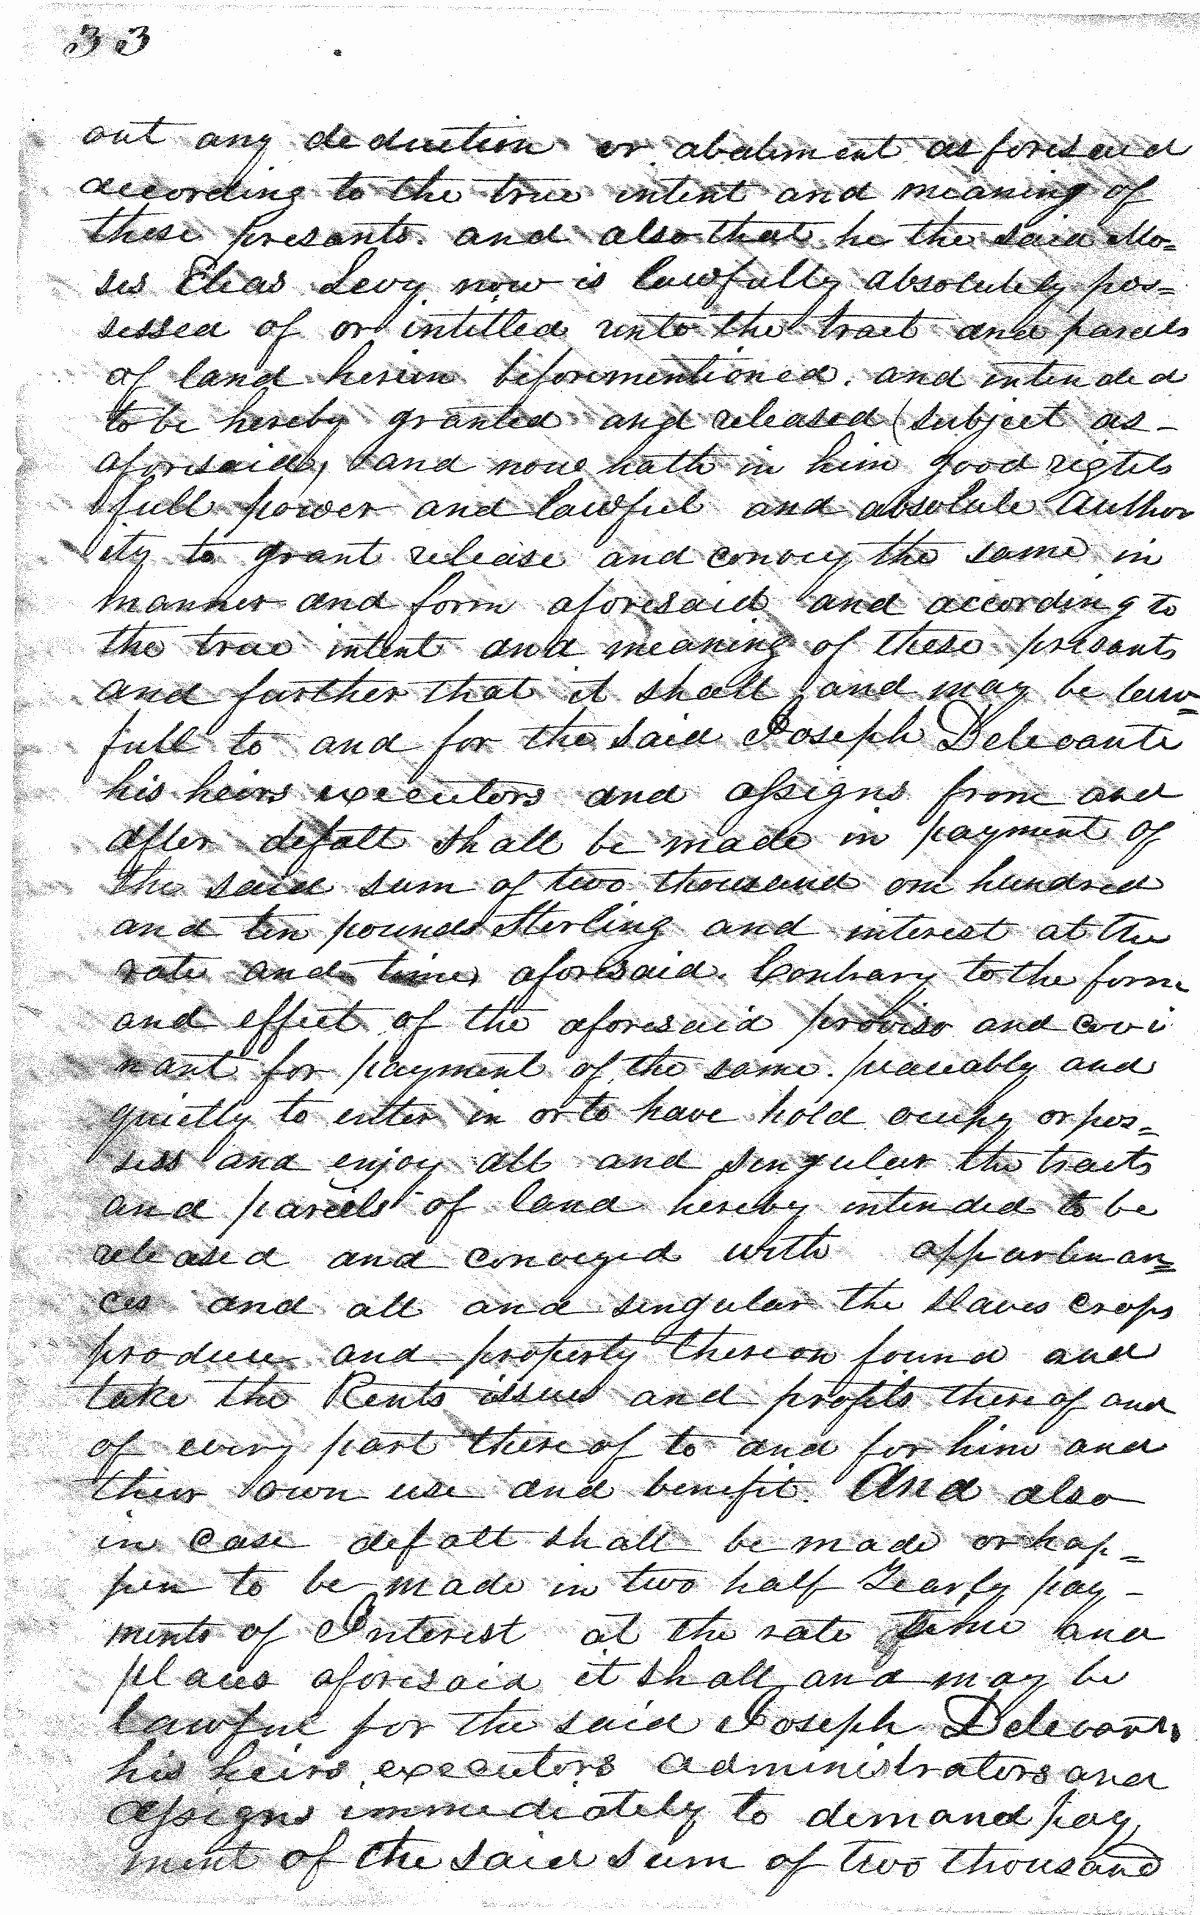 33
out any deduction or abatement as foresaid
according to the true intent and meaning of
these presants. and also that he the said Mo=
ses Elias Levy now is lawfully absolutely pos=
sessed of or intitled unto the tract and parcels
of land herein beforementioned. and intended
to be hereby granted and released (subject as -
aforesaid,) and now hath in him good rights
full power and lawful and absolute Author
ity to grant release and convey the same in
manner and form aforesaid and according to
the true intent and meaning of these presants
and further that it shall and may be law=
full to and for the said Joseph Delevante
his heirs executors and assigns from and
after defalt shall be made in payment of
the said sum of two thousand one hundred
and ten pounds Sterling and interest at the
rate and times aforesaid. Contrary to the form
and effect of the aforesaid proviso and cove
nant for payment of the same. peaceably and
quietly to enter in or to have hold ocupy or pos=
sess and enjoy all and singular the tracts
and parcels of land hereby intended to be
released and conveyed with appartenan=
ces and all and singular the slaves crops
produce and property thereon found and
take the Rents issues and profits thereof and
of every part thereof to and for him and
their own use and benefit. And also
in case defalt shall be made or hap=
pen to be made in two half Yearly pay-
ments of Interest at the rate time and
places aforesaid it shall and may be
lawful for the said Joseph Delevante
his heirs executors administrators and
assigns immediately to demand pay
ment of the said sum of two thousand